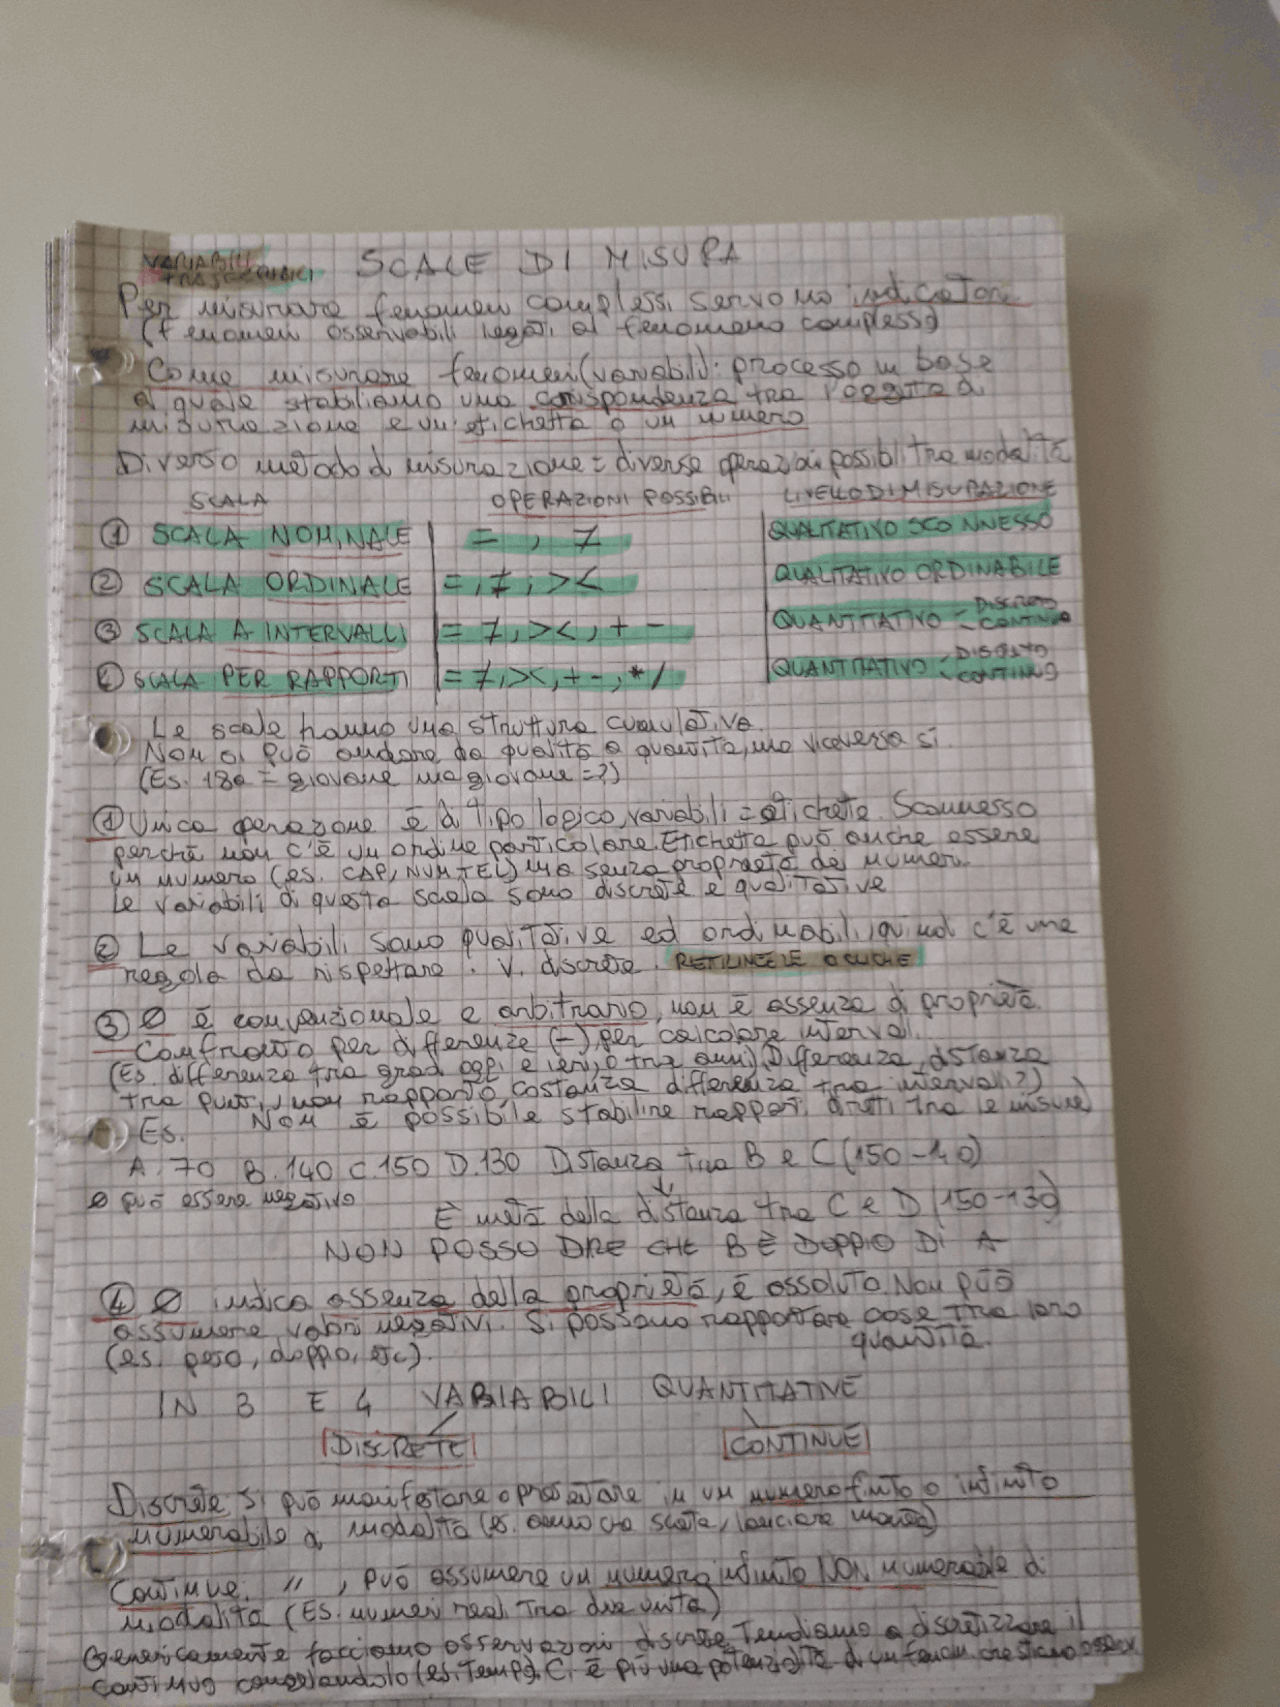 VARIABILI SCALE DI MISURA
Per misurare fenomeni complessi servono indicatori
(fenomeni osservabili legati al fenomeno complesso)
Come misurare fenomeni (variabili): processo in base
al quale stabiliamo una corrispondenza tra l'oggetto di
misurazione e un'etichetta o un numero
Diverso metodo di misurazione = diverse operazioni possibili tra modalità
SCALA OPERAZIONI POSSIBILI LIVELLO DI MISURAZIONE
① SCALA NOMINALE = , ≠ QUALITATIVO SCONNESSO
② SCALA ORDINALE =, ≠, >< QUALITATIVO ORDINABILE
③ SCALA A INTERVALLI = ≠, ><, + - QUANTITATIVO - DISCRETO - CONTINUO
④ SCALA PER RAPPORTI = ≠, ><, + -, * / QUANTITATIVO - DISCRETO - CONTINUO
Le scale hanno una struttura cumulativa.
Non si può andare da qualità a quantità, ma viceversa sì.
(Es. 18a = giovane ma giovane = ?)
① Unica operazione è di tipo logico, variabili = etichette. Sconnesso
perché non c'è un ordine particolare. Etichetta può anche essere
un numero (es. CAP, NUM, TEL) ma senza proprietà dei numeri.
Le variabili di questa scala sono discrete e qualitative
② Le variabili sono qualitative ed ordinabili, quindi c'è una
regola da rispettare. V. discrete. RETTILINEE
③ Ø è convenzionale e arbitrario, non è assenza di proprietà.
Confronto per differenze (-), per calcolare intervalli.
(Es. differenza tra gradi oggi e ieri, o tra anni) Differenza, distanza
tra punti, non rapporto, costanza differenza tra intervalli?)
Es. Non è possibile stabilire rapporti diretti tra le misure)
A. 70 B. 140 C. 150 D. 130 Distanza tra B e C (150-140)
Ø può essere negativo ↓
È metà della distanza tra C e D (150-130)
NON POSSO DIRE CHE B È DOPPIO DI A
④ Ø indica assenza della proprietà, è assoluto. Non può
assumere valori negativi. Si possono rapportare cose tra loro
(es. peso, doppio, etc). quantità.
IN 3 E 4 VARIABILI QUANTITATIVE
DISCRETE CONTINUE
Discrete: Si può manifestare o presentare in un numero finito o infinito
numerabile di modalità (es. anno scelta, lanciare moneta)
Continue. " , può assumere un numero infinito NON numerabile di
modalità (ES. numeri reali tra due unità)
Genericamente facciamo osservazioni discrete. Tendiamo a discretizzare il
continuo congelandolo (es. Tempo). C. è più una potenzialità di un fenom. che stiamo